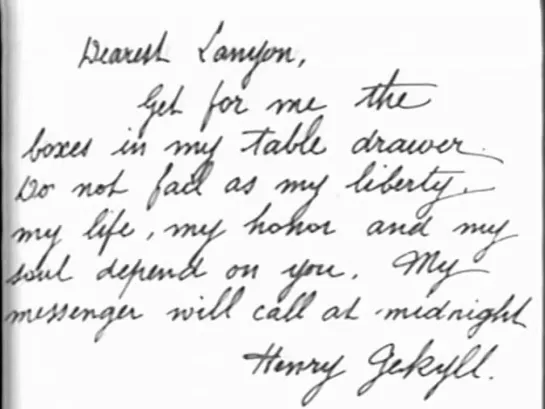 Dearest Lanyon,
Get for me the
boxes in my table drawer.
Do not fail as my liberty,
my life, my honor and my
soul depend on you. My
messenger will call at midnight
Henry Jekyll.